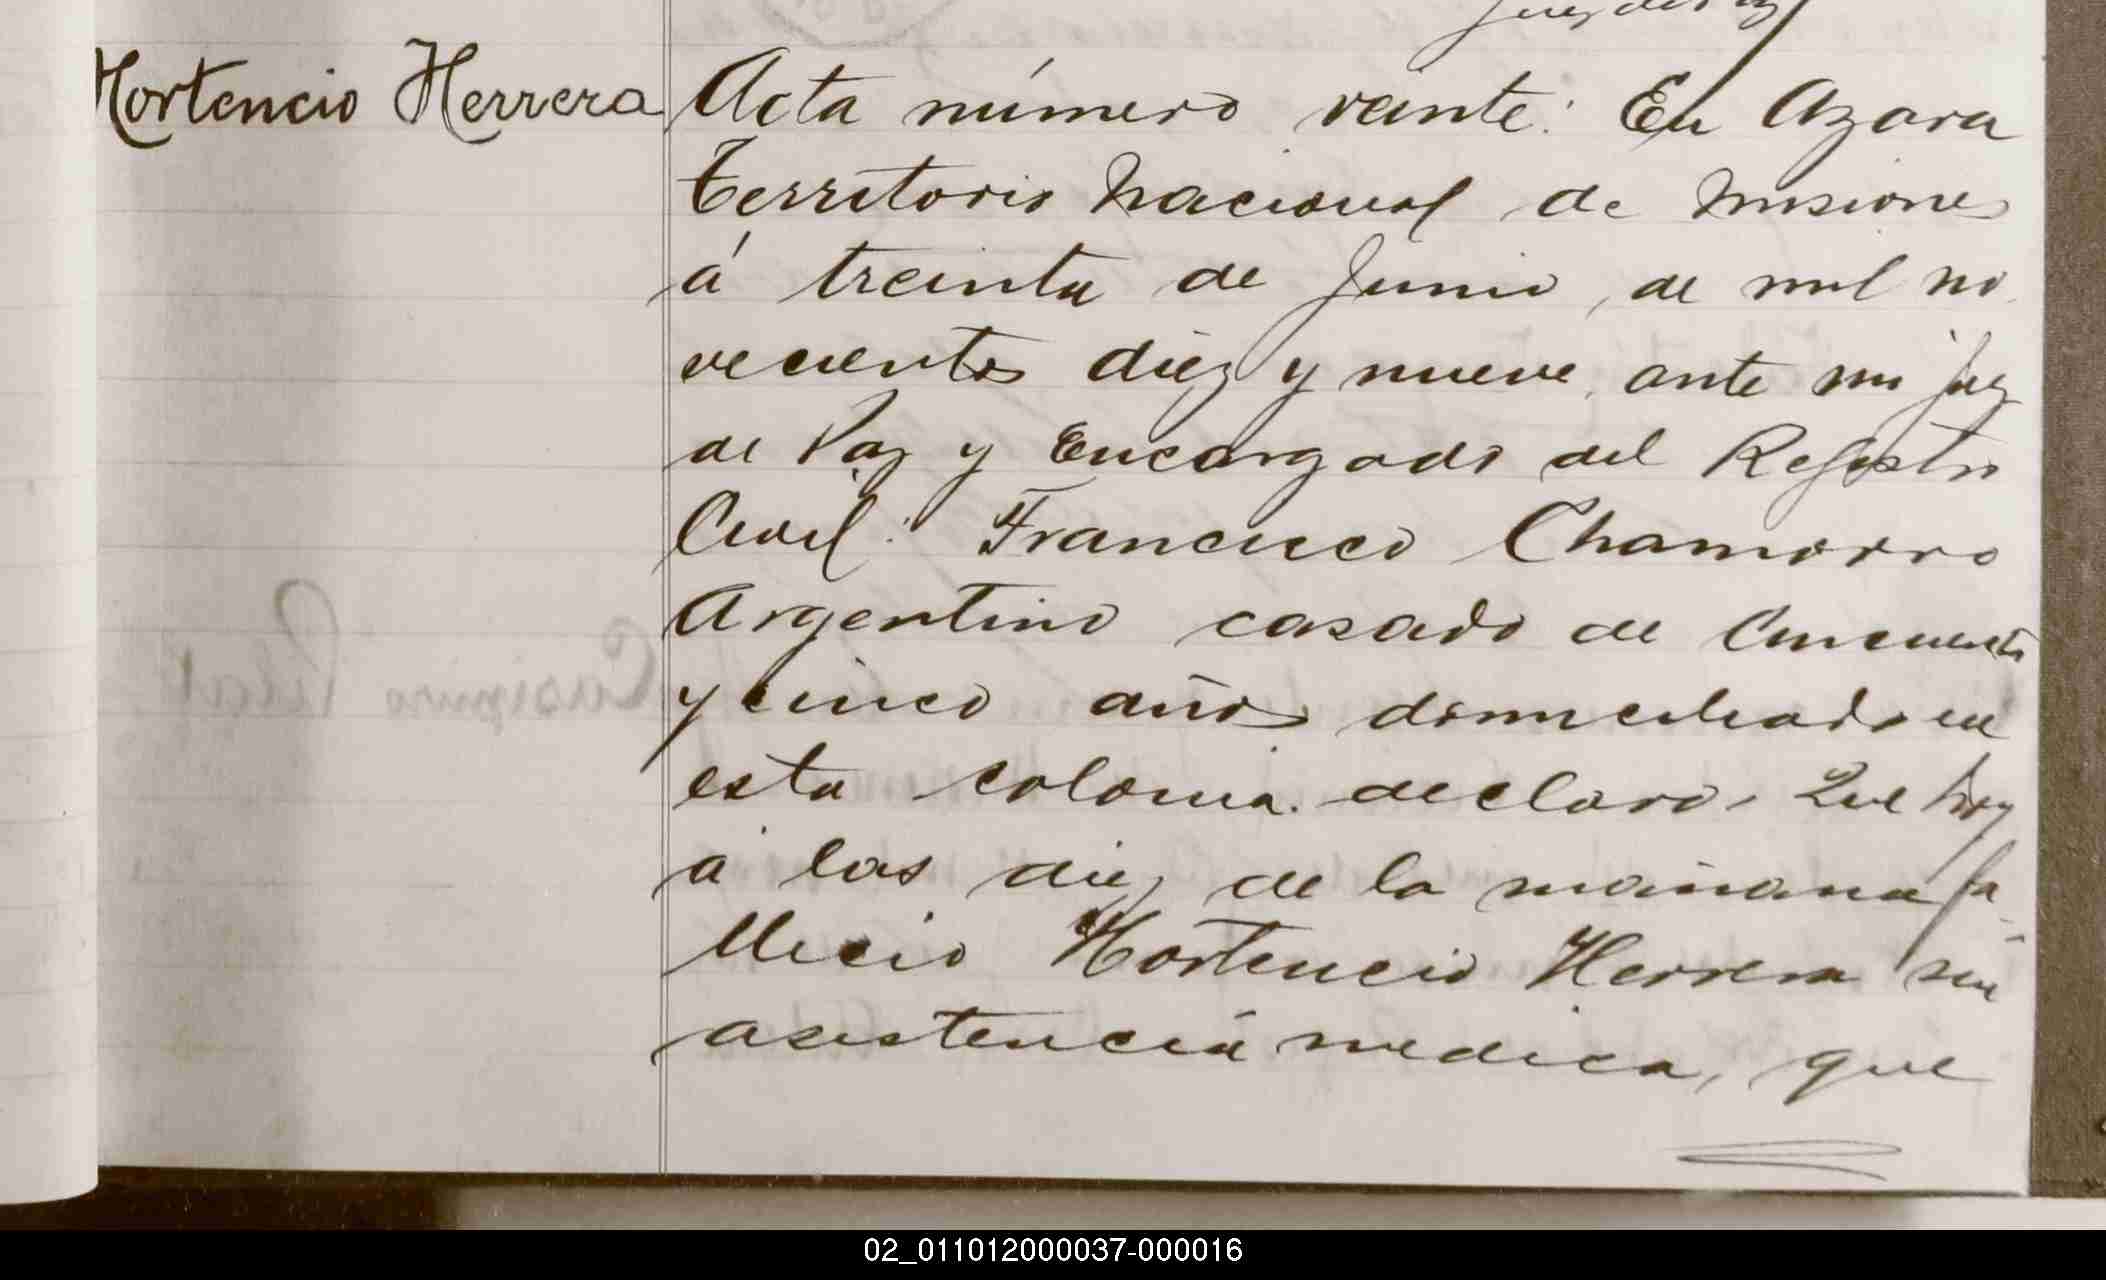 Juez de Paz
Hortencio Herrera
Acta número veinte: En Azara
Territorio Nacional de Misiones
á treinta de Junio, de mil no
vecientos diez y nueve, ante mi Juez
de Paz y Encargado del Registro
Civil: Francisco Chamorro
Argentino casado de Cincuenta
y cinco años domiciliado en
esta colonia. declaro, Que hoy
á las diez de la mañana fa-
llecio Hortencio Herrera sin
asistencia medica, que
02_011012000037-000016